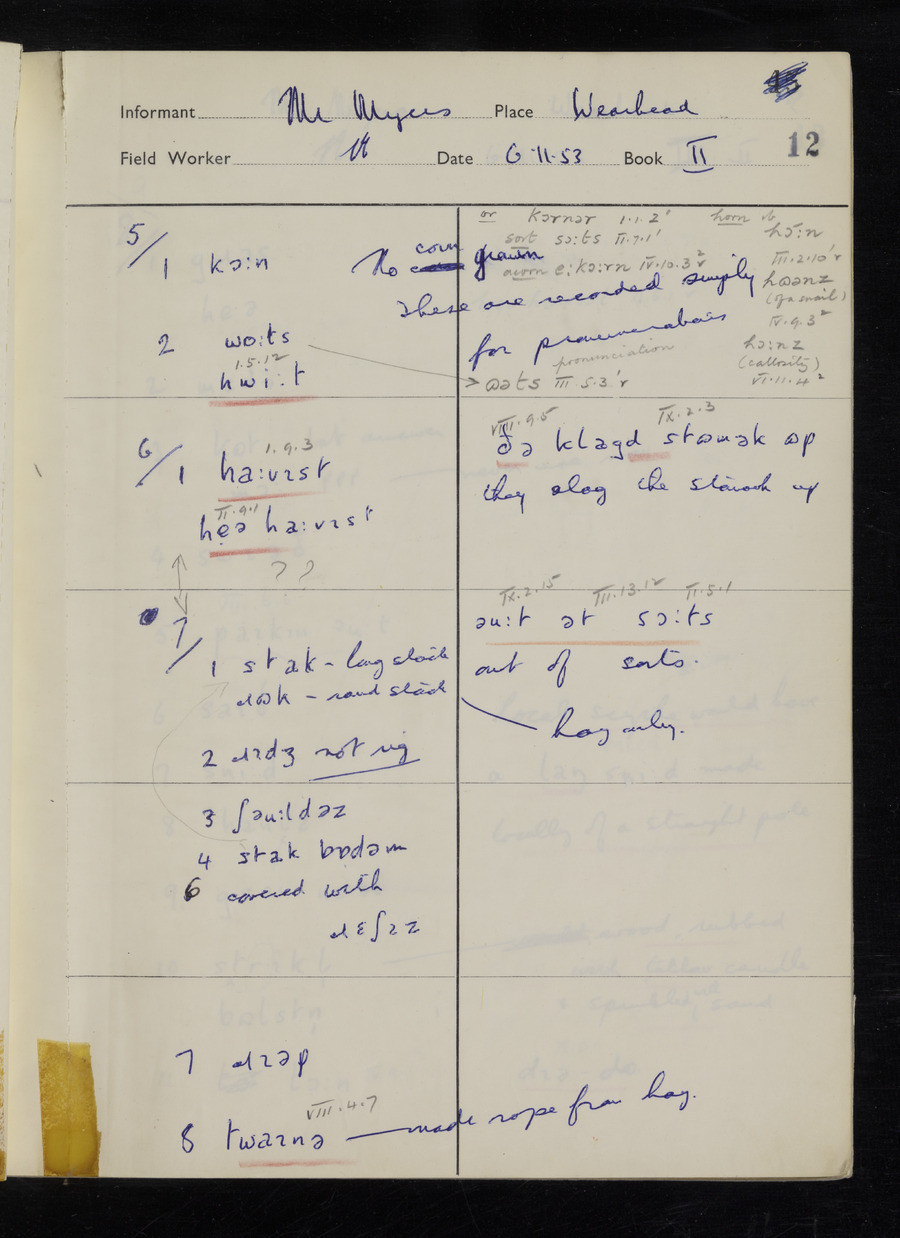 Informant Mr Myers Place Wearhead
Field Worker Date 6·11·53 Book II 12
5/
1 kɔ:n
No corn grown
These are recorded simply
for
or kɔrnər 1·1·2'
sort sɔ:ts II·7·1'
acorn e:kɔ:rn IV·10·3²
horn
hɔ:n
III·2·10'r
(of a snail)
IV·9·3²
hɔ:nz
(callosity)
VI·11·4²
2 wo:ts
1·5·12
hwi:t
pronunciation
III 5·3'r
6/
1 ha:vɪst
I·9·3
II·9·1
ha:vɪst
??
VIII·9·5 IX·2·3
ðə klagd
they clag the up
7/
1 stak - long stack
- round stack
2 not rig
IX·2·15 III·13·12 II·5·1
əu:t ət sɔ:ts
out of sorts.
hay only.
3 ʃəu:ldəz
4 stak bɒdəm
6 covered with
7
8 twaɪnə — made rope from hay.
VIII·4·7